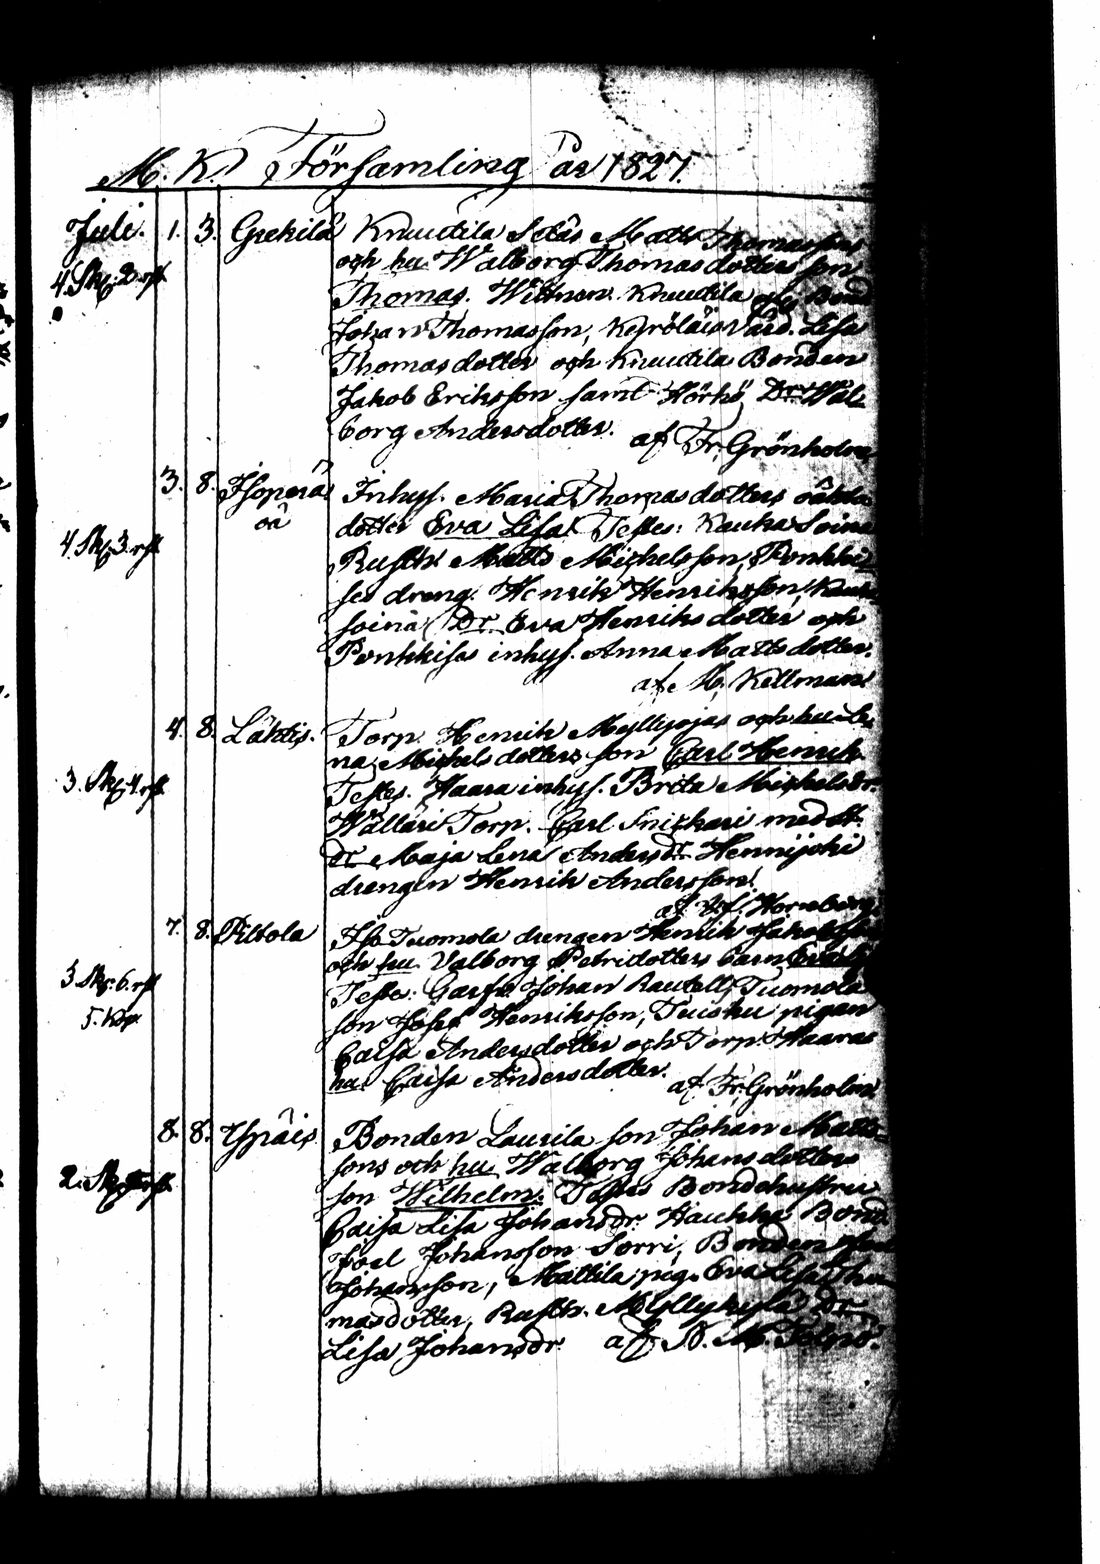 M. K. Församling år 1827.
Juli. 1. 3. Grekilä Knuutila Matts Thomassons
och hu Walborg Thomasdotters son
4. Sk. 2. rst. Thomas. Wittnen. Knuutila Bond
Johan Thomasson, Lisa
Thomasdotter och Knuutila Bonden
Jakob Eriksson samt Hörhö Dr. Wal-
borg Andersdotter.
af Fr. Grönholm
3. 8. Isoperä Inhys. Maria Thomasdotters oäkta
oä dotter Eva Lisa. Testes: Kauka Soina
4. Sk. 3. rst. Rusth. Matts Michelsson,
dreng. Henrik Henriksson,
soina Dr. Eva Henriksdotter och
inhys. Anna Mattsdotter.
af M. Kellman
4. 8. Lähtis. Torp. Henrik Myllyojas och hu Le-
na Michelsdotters son Carl Henrik
3. Sk. 4. rst. Testes. Haara inhys. Brita Michelsdr.
Wälläri Torp. Carl Snickari med
dr Maja Lena Andersdr. Hennijoki
drengen Henrik Andersson.
af Horneborg.
7. 8. Piltola Iso Tuomola drengen Henrik Jakobsson
och hu. Valborg Petridotters barn
3 Sk. 6. rst Teste: Johan Rautell, Tuomola
5. Kop. son Josef Henriksson, Tuisku pigan
Caisa Andersdotter och Torp. Haaras
hu. Caisa Andersdotter.
af Fr. Grönholm
8. 8. Yspäis Bonden Laurila son Johan Matts-
sons och hu Walborg Johansdotters
2. Sk. rst. son Wilhelm. Testes Bondehustru
Caisa Lisa Johansdr. Haukka Bond
Joel Johansson Sorri, Bonden
Johansson, Mattila pig. Eva Lisa Tho-
masdotter, Rusth. Myllykylä Dr
Lisa Johansdr. af N. M.